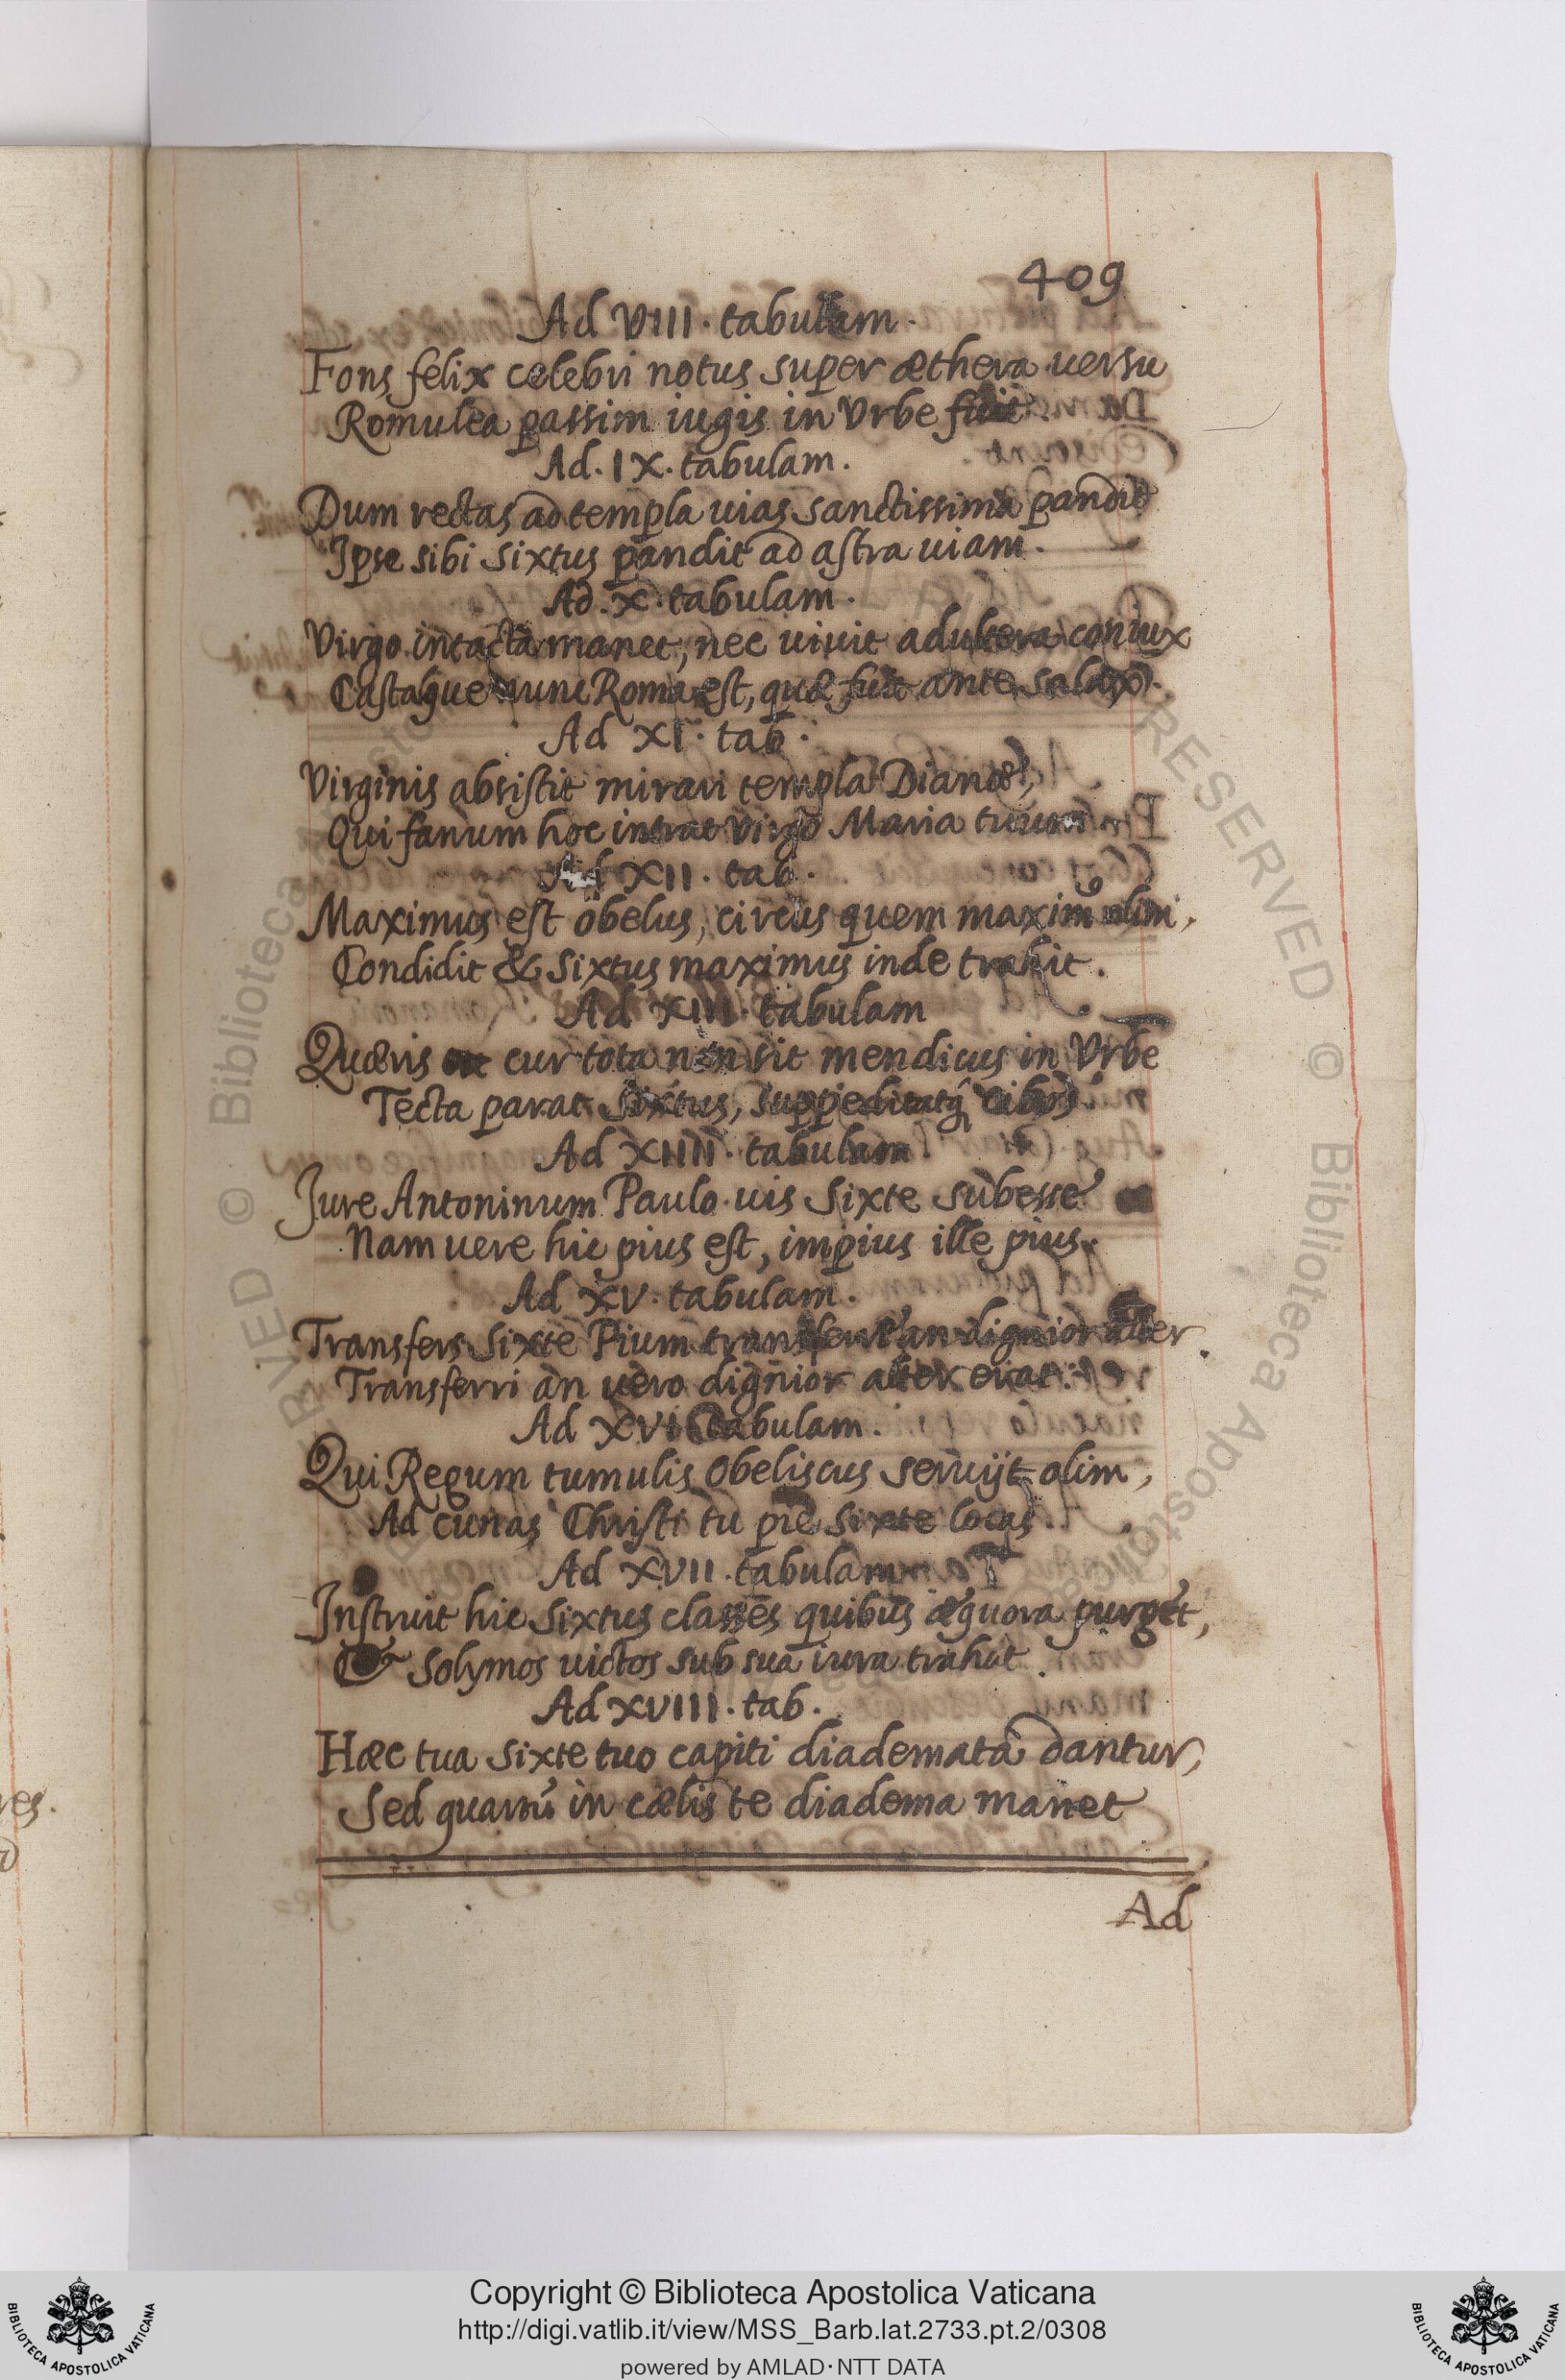 409
Ad VIII. tabulam.
Fons felix celebri notus super æthera versu
Romulea passim iugis in Vrbe fluit
Ad. IX. tabulam.
Dum rectas ad templa uias sanctissima pandit
Ipse sibi Sixtus pandit ad astra uiam.
Ad. X. tabulam.
Virgo intacta manet, nec uiuit adultera coniux
Castaque nunc Roma est, quæ fuit ante salax.
Ad XI. tab.
Virginis absistit mirari templa Dianæ,
Qui fanum hoc intrat Virgo Maria tuum
Ad XII. tab.
Maximus est obelus, circus quem maximꝰ olim,
Condidit & Sixtus maximus inde trahit.
Ad XIII. tabulam
Quæris cur tota non sit mendicus in Vrbe
Tecta parat Sixtus, suppeditatq́ cibos
Ad XIIII. tabulam
Jure Antoninum Paulo uis Sixte subesse
Nam uere hic pius est, impius ille pius.
Ad XV. tabulam.
Transfers Sixte Pium transferri an dignior alter
Transferri an uero dignior alter erat.
Ad XVI tabulam.
Qui Regum tumulis obeliscus seruijt olim,
Ad cunas Christi tu pie Sixte locas.
Ad XVII. tabulam
Instruit hic Sixtus classes quibus æquora purget,
& Solymos uictos sub sua iura trahat.
Ad XVIII. tab.
Hæc tua Sixte tuo capiti diademata dantur,
Sed quartū in cælis te diadema manet
Ad
res.
RESERVED © Biblioteca Apostolica
RVED © Biblioteca
Copyright © Biblioteca Apostolica Vaticana
http://digi.vatlib.it/view/MSS_Barb.lat.2733.pt.2/0308
powered by AMLAD·NTT DATA
BIBLIOTECA APOSTOLICA VATICANA
BIBLIOTECA APOSTOLICA VATICANA